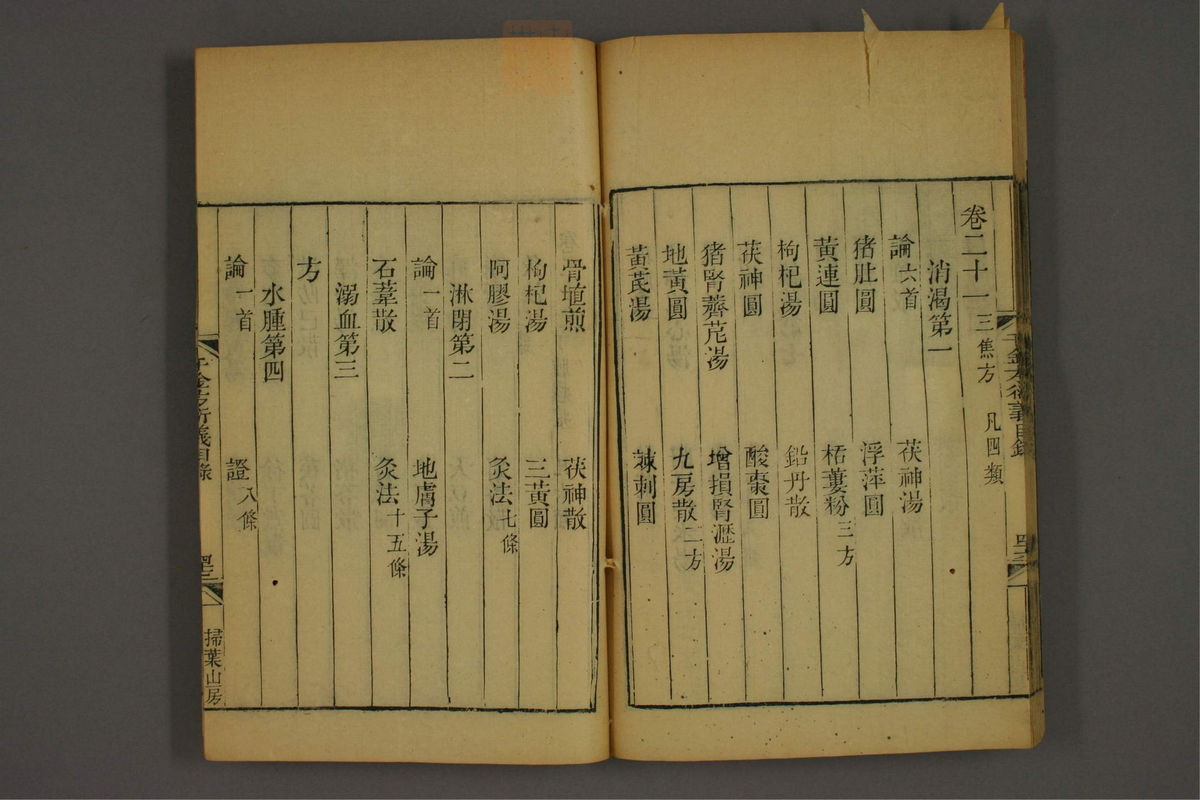 卷二十一 三焦方 凡四類
消渴第一
論六首 茯神湯
猪肚圓 浮萍圓
黃連圓 栝蔞粉三方
枸杞湯 鉛丹散
茯神圓 酸棗圓
猪腎薺苨湯 增損腎瀝湯
地黃圓 九房散二方
黃芪湯 棘刺圓
骨塡煎 茯神散
枸杞湯 三黃圓
阿膠湯 灸法七條
淋閉第二
論一首 地膚子湯
石葦散 灸法十五條
溺血第三
方
水腫第四
論一首 證八條
千金方衍義目錄
掃葉山房